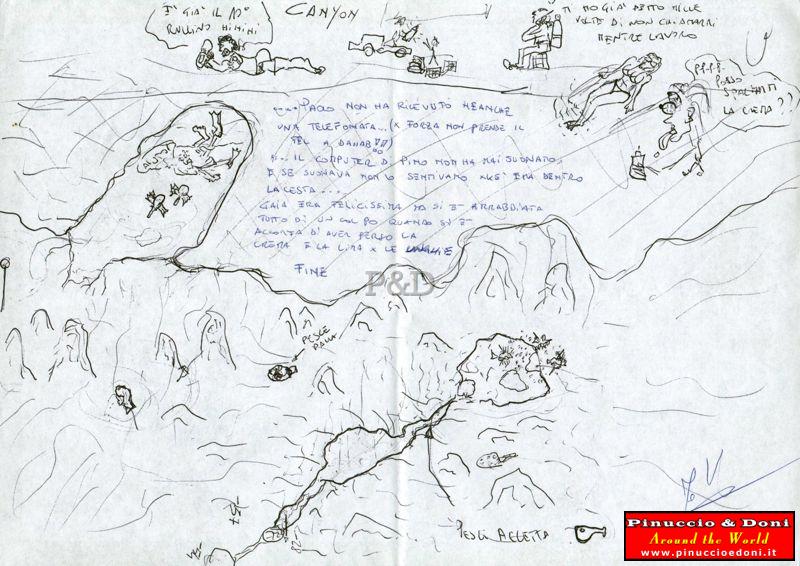 E' GIÀ IL 10°
RULLINO HIHIHI
CANYON
TI HO GIÀ DETTO MILLE
VOLTE DI NON CHIAMARMI
MENTRE LAVORO
P.P.P.P.
POSSO
SPALMARTI
LA CREMA??
....PAOLO NON HA RICEVUTO NEANCHE
UNA TELEFONATA...(X FORZA NON PRENDE IL
TEL A DAHAB!!!)
... IL COMPUTER DI PINO NON HA MAI SUONATO,
E SE SUONAVA NON LO SENTIVANO XKÈ ERA DENTRO
LA CESTA....
GAIA ERA FELICISSIMA MA SI È ARRABBIATA
TUTTO DI UN COLPO QUANDO SI È
ACCORTA DI AVER PERSO LA
CREMA E LA LIMA X LE
FINE
P&D
PESCE
PALLA
PESCI
Pinuccio & Doni
Around the World
www.pinuccioedoni.it